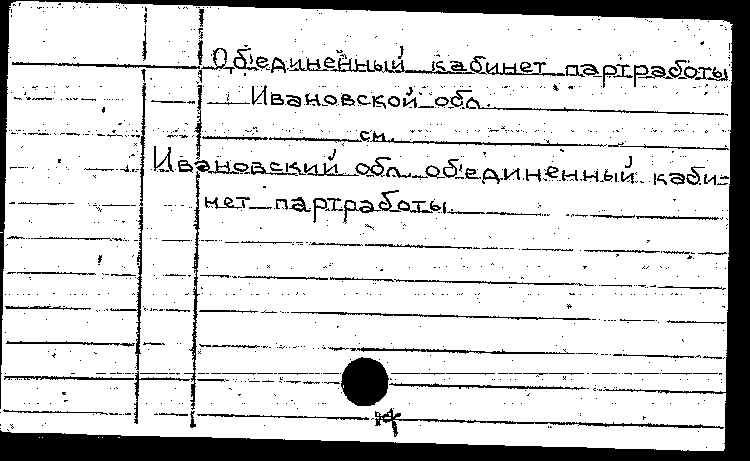 Об'единенный кабинет партработы
Ивановской обл.
см.
Ивановский обл. об'единенный каби-
нет партработы.